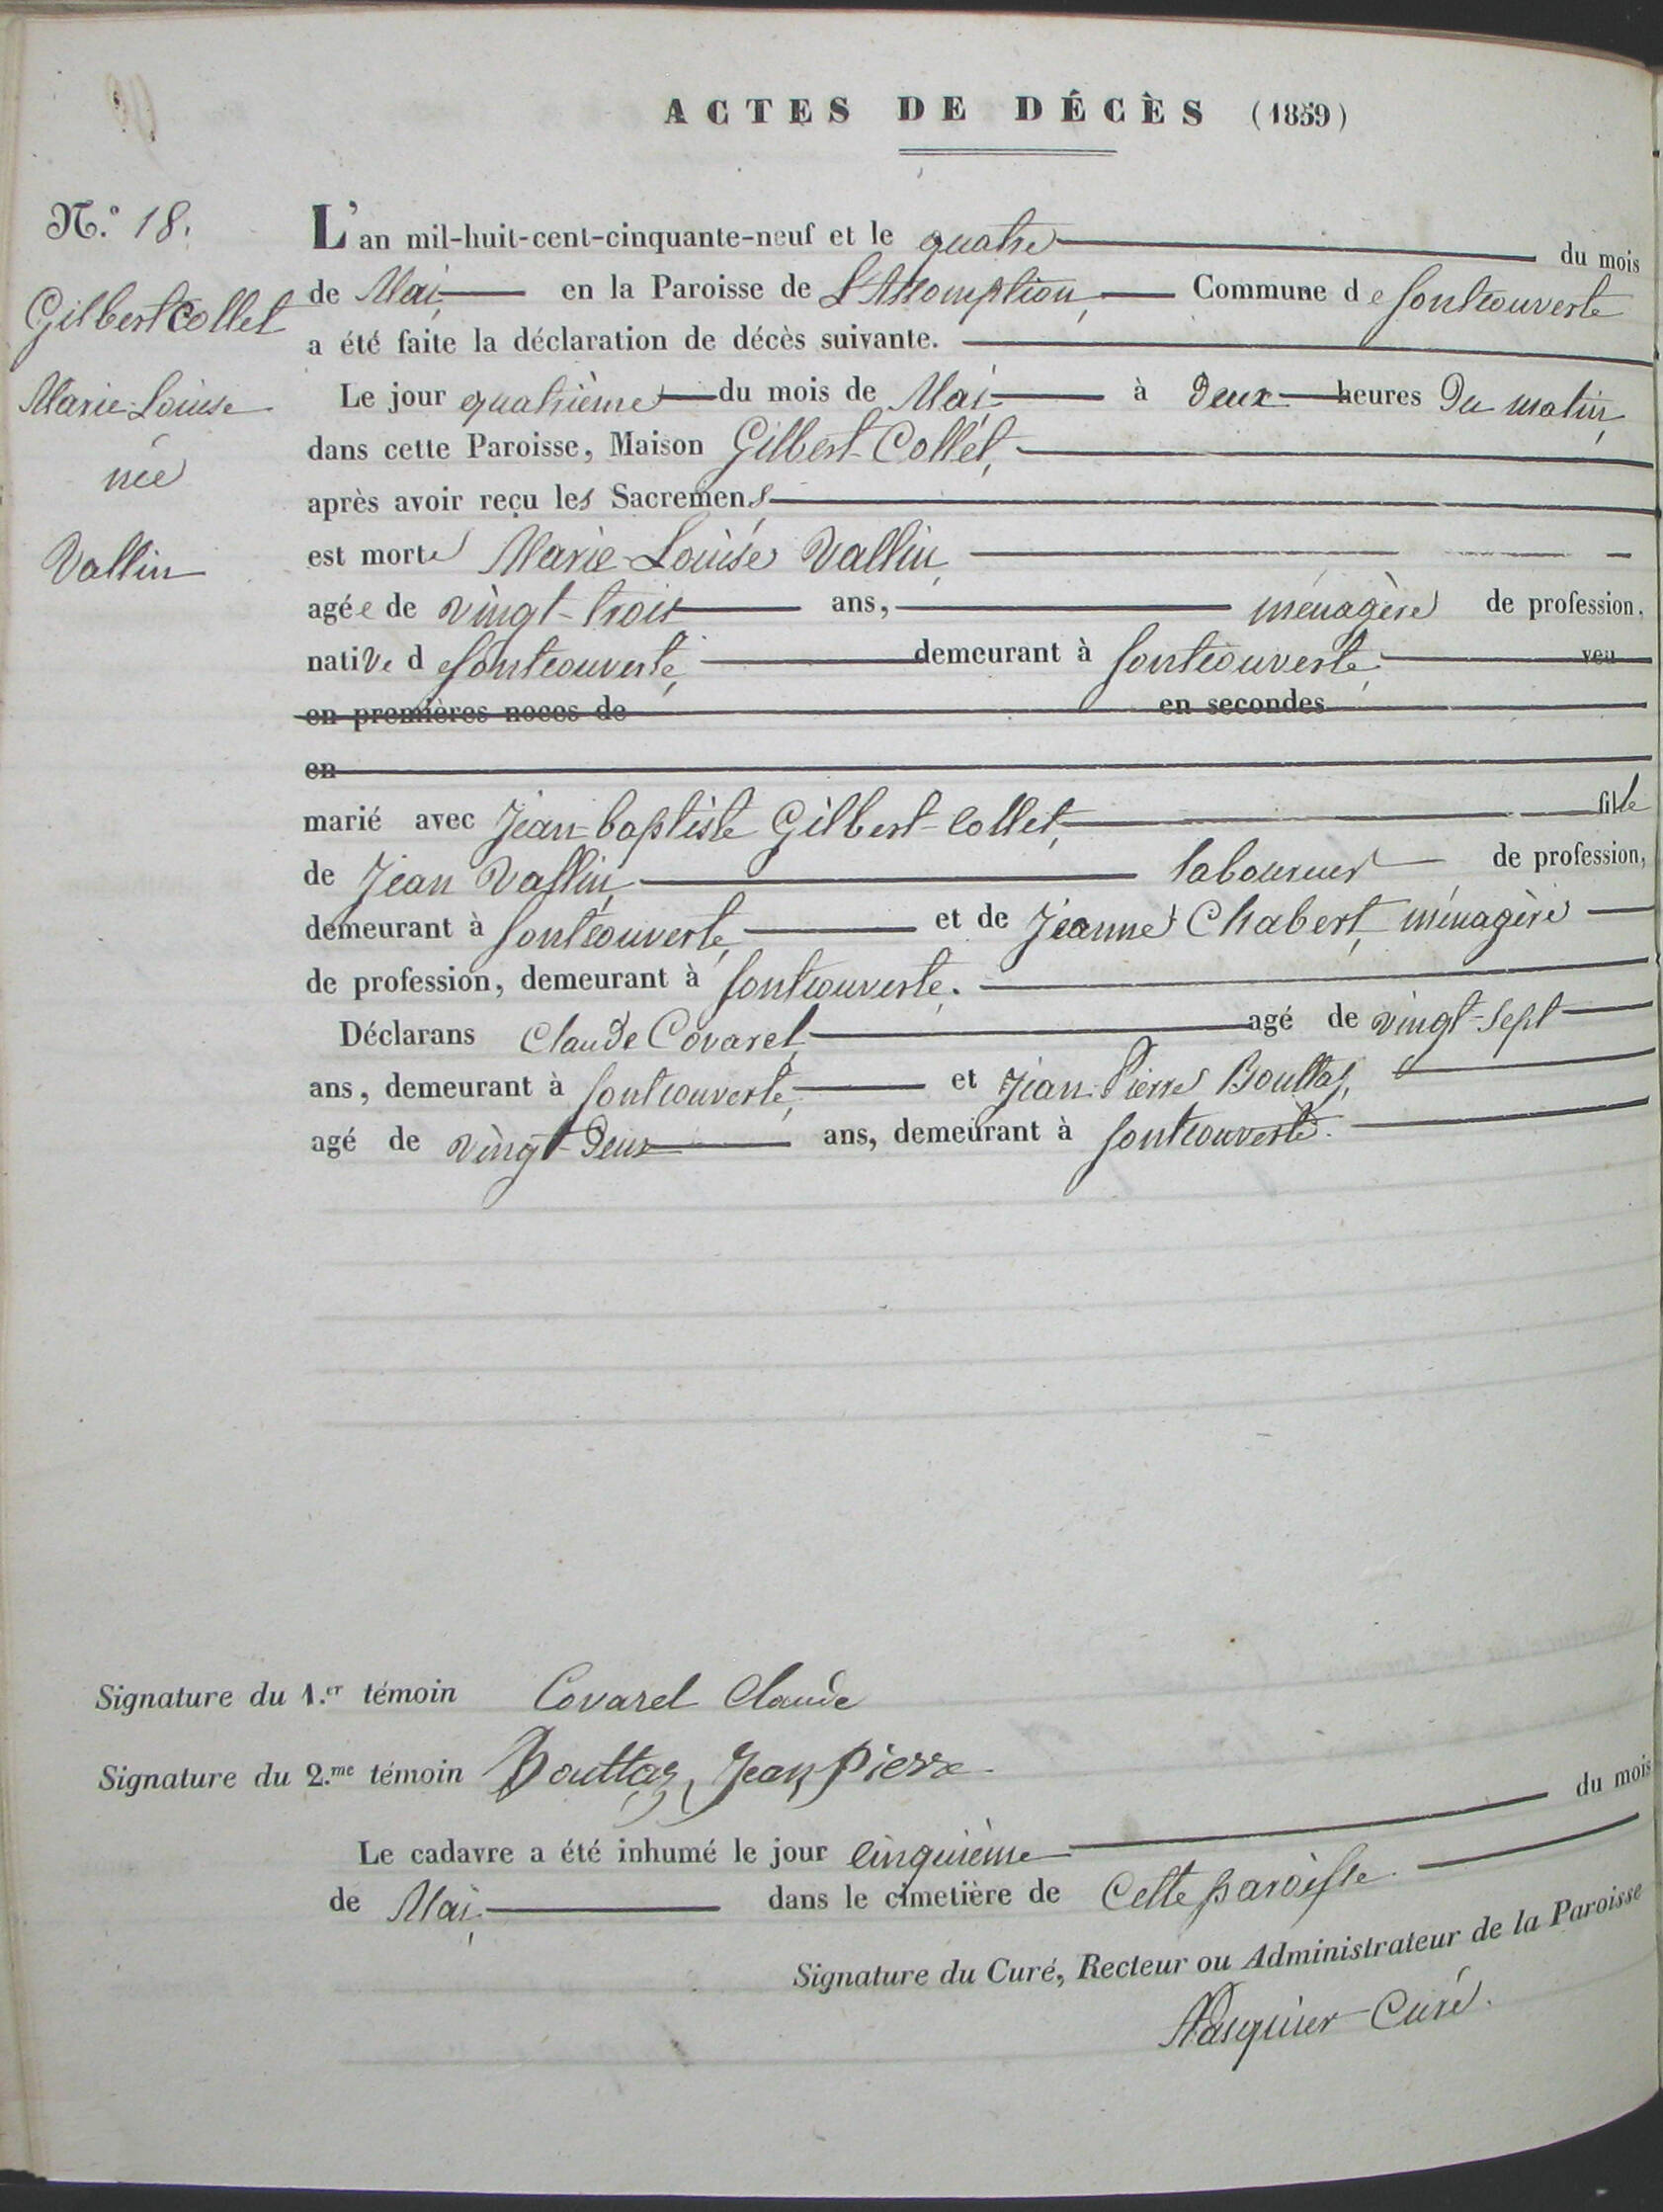 ACTES DE DÉCÈS (1859)
N.º 18.
Gilbert Collet
Marie-Louise
née
Vallin
L'an mil-huit-cent-cinquante-neuf et le quatre du mois
de Mai, en la Paroisse de L'Assomption, Commune de fontcouverte
a été faite la déclaration de décès suivante.
Le jour quatrième du mois de Mai à deux heures du matin,
dans cette Paroisse, Maison Gilbert-Collet,
après avoir reçu les Sacremens
est morte Marie-Louise Vallin,
agée de vingt-trois ans, ménagère de profession,
native de fontcouverte, demeurant à fontcouverte, veu
en premières noces de en secondes
en
marié avec Jean-baptiste Gilbert-Collet, fille
de Jean Vallin, laboureur de profession,
demeurant à fontcouverte, et de Jeanne Chabert, ménagère
de profession, demeurant à fontcouverte.
Déclarans Claude Covarel, agé de vingt-sept
ans, demeurant à fontcouverte, et Jean-Pierre Bouttaz,
agé de vingt-deux ans, demeurant à fontcouverte.
Signature du 1.er témoin Covarel Claude
Signature du 2.me témoin Bouttaz Jean pierre
Le cadavre a été inhumé le jour cinquième du mois
de Mai, dans le cimetière de cette paroisse.
Signature du Curé, Recteur ou Administrateur de la Paroisse
Curé.